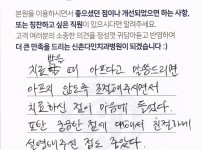 본원을 이용하시면서 좋으셨던 점이나 개선되었으면 하는 사항,
또는 칭찬하고 싶은 직원이 있으시다면 말씀해주세요.
고객 여러분의 소중한 의견을 정성껏 귀담아듣고 반영하여
더 큰 만족을 드리는 신촌다인치과병원이 되겠습니다 :)
받을
치료할 때 아프다고 말씀드리면
아프지 않도록 조절해주시면서
치료하신 점이 마음에 들었다.
또한 궁금한 점에 대해서 친절하게
설명해주신 점도 좋았다.